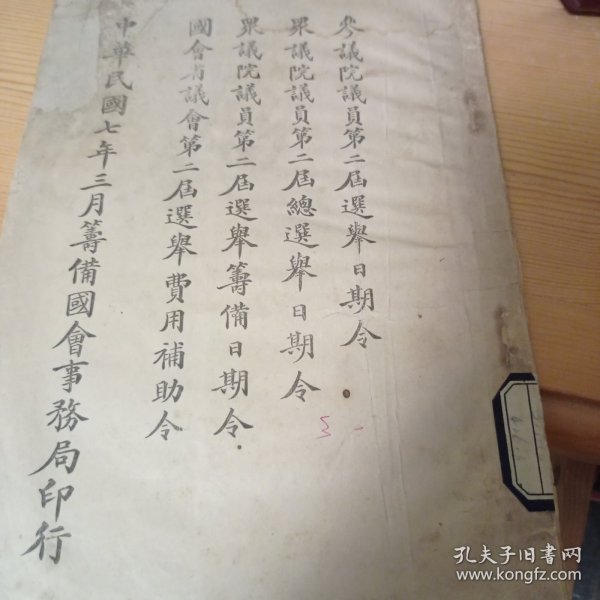 參議院議員第二屆選舉日期令
眾議院議員第二屆總選舉日期令
眾議院議員第二屆選舉籌備日期令
國會省議會第二屆選舉費用補助令
中華民國七年三月籌備國會事務局印行
孔夫子旧书网
www.kongfz.com